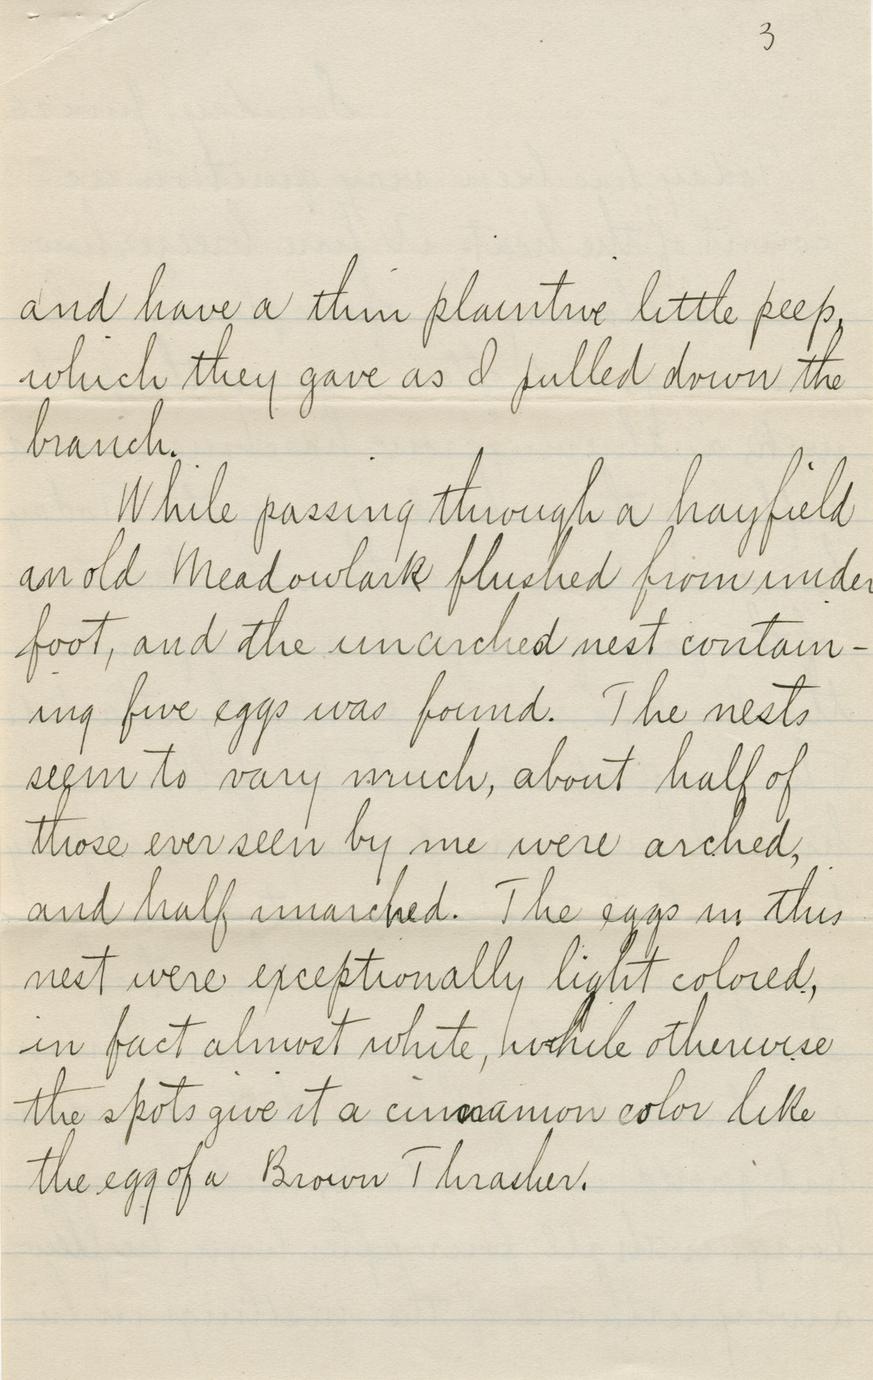 3
and have a thin plaintive little peep,
which they gave as I pulled down the
branch.
While passing through a hayfield
an old Meadowlark flushed from under
foot, and the unarched nest contain-
ing five eggs was found. The nests
seem to vary much, about half of
those ever seen by me were arched,
and half unarched. The eggs in this
nest were exceptionally light colored,
in fact almost white, while otherwise
the spots give it a cinnamon color like
the egg of a Brown Thrasher.